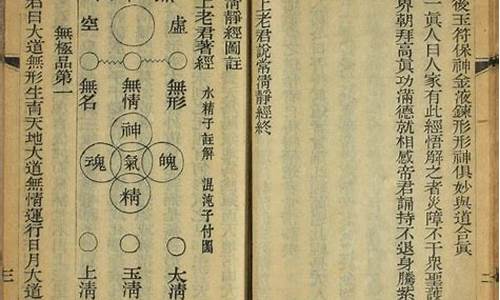 後玉符保神金液鍊形形神俱妙與道合眞
一眞人曰人家有此經悟解之者災障不干衆聖護
界朝拜高眞功滿德就相感帝君誦持不退身騰紫
上老君說常淸靜經終
二
淸靜經圖註
上老君著經
水精子註解
混沌子付圖
虛
無
空
無形
無情
無名
神
魄
氣
魂
精
太淸
玉淸
上淸
無極品第一
君曰大道無形生育天地大道無情運行日月大道
三